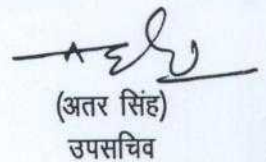 (अतर सिंह)
उपसचिव